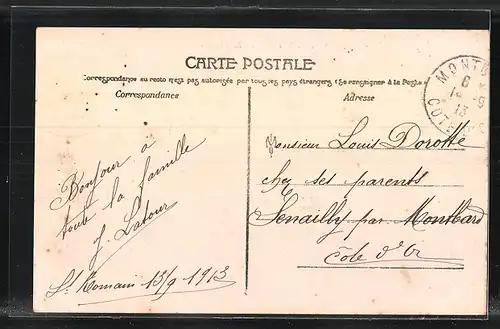 CARTE POSTALE
Correspondance au resto n'est pas autorisée par tous les pays étrangers (Se renseigner à la Poste)
Correspondance
Adresse
Bonjour a
toute la famille
J. Latour
St Romain 13/9 1913
Monsieur Louis Dorotte
chez ses parents
Senailly par Montbard
Côte d'Or
MONTB
CÔTE